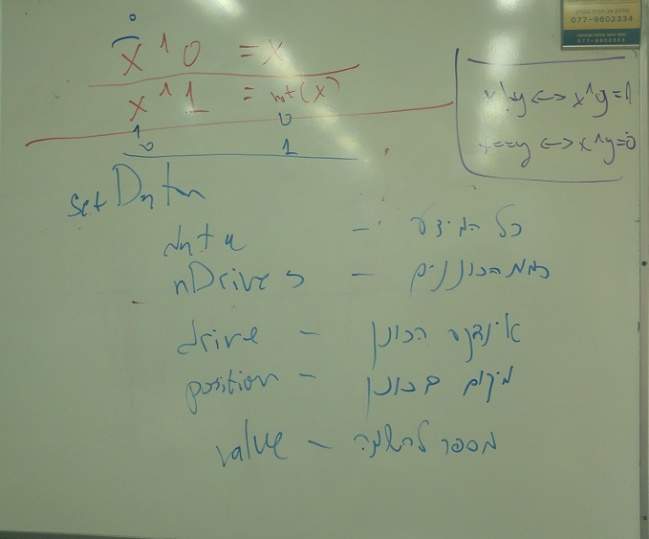 077-9802334
0
x^0 = x
x^1 = not(x)
1 0
0 1
x!=y <-> x^y=1
x==y <-> x^y=0
setData
data - כל המידע
nDrives - כמות הכוננים
drive - אינדקס הכונן
position - מיקום בכונן
value - מספר להשמה